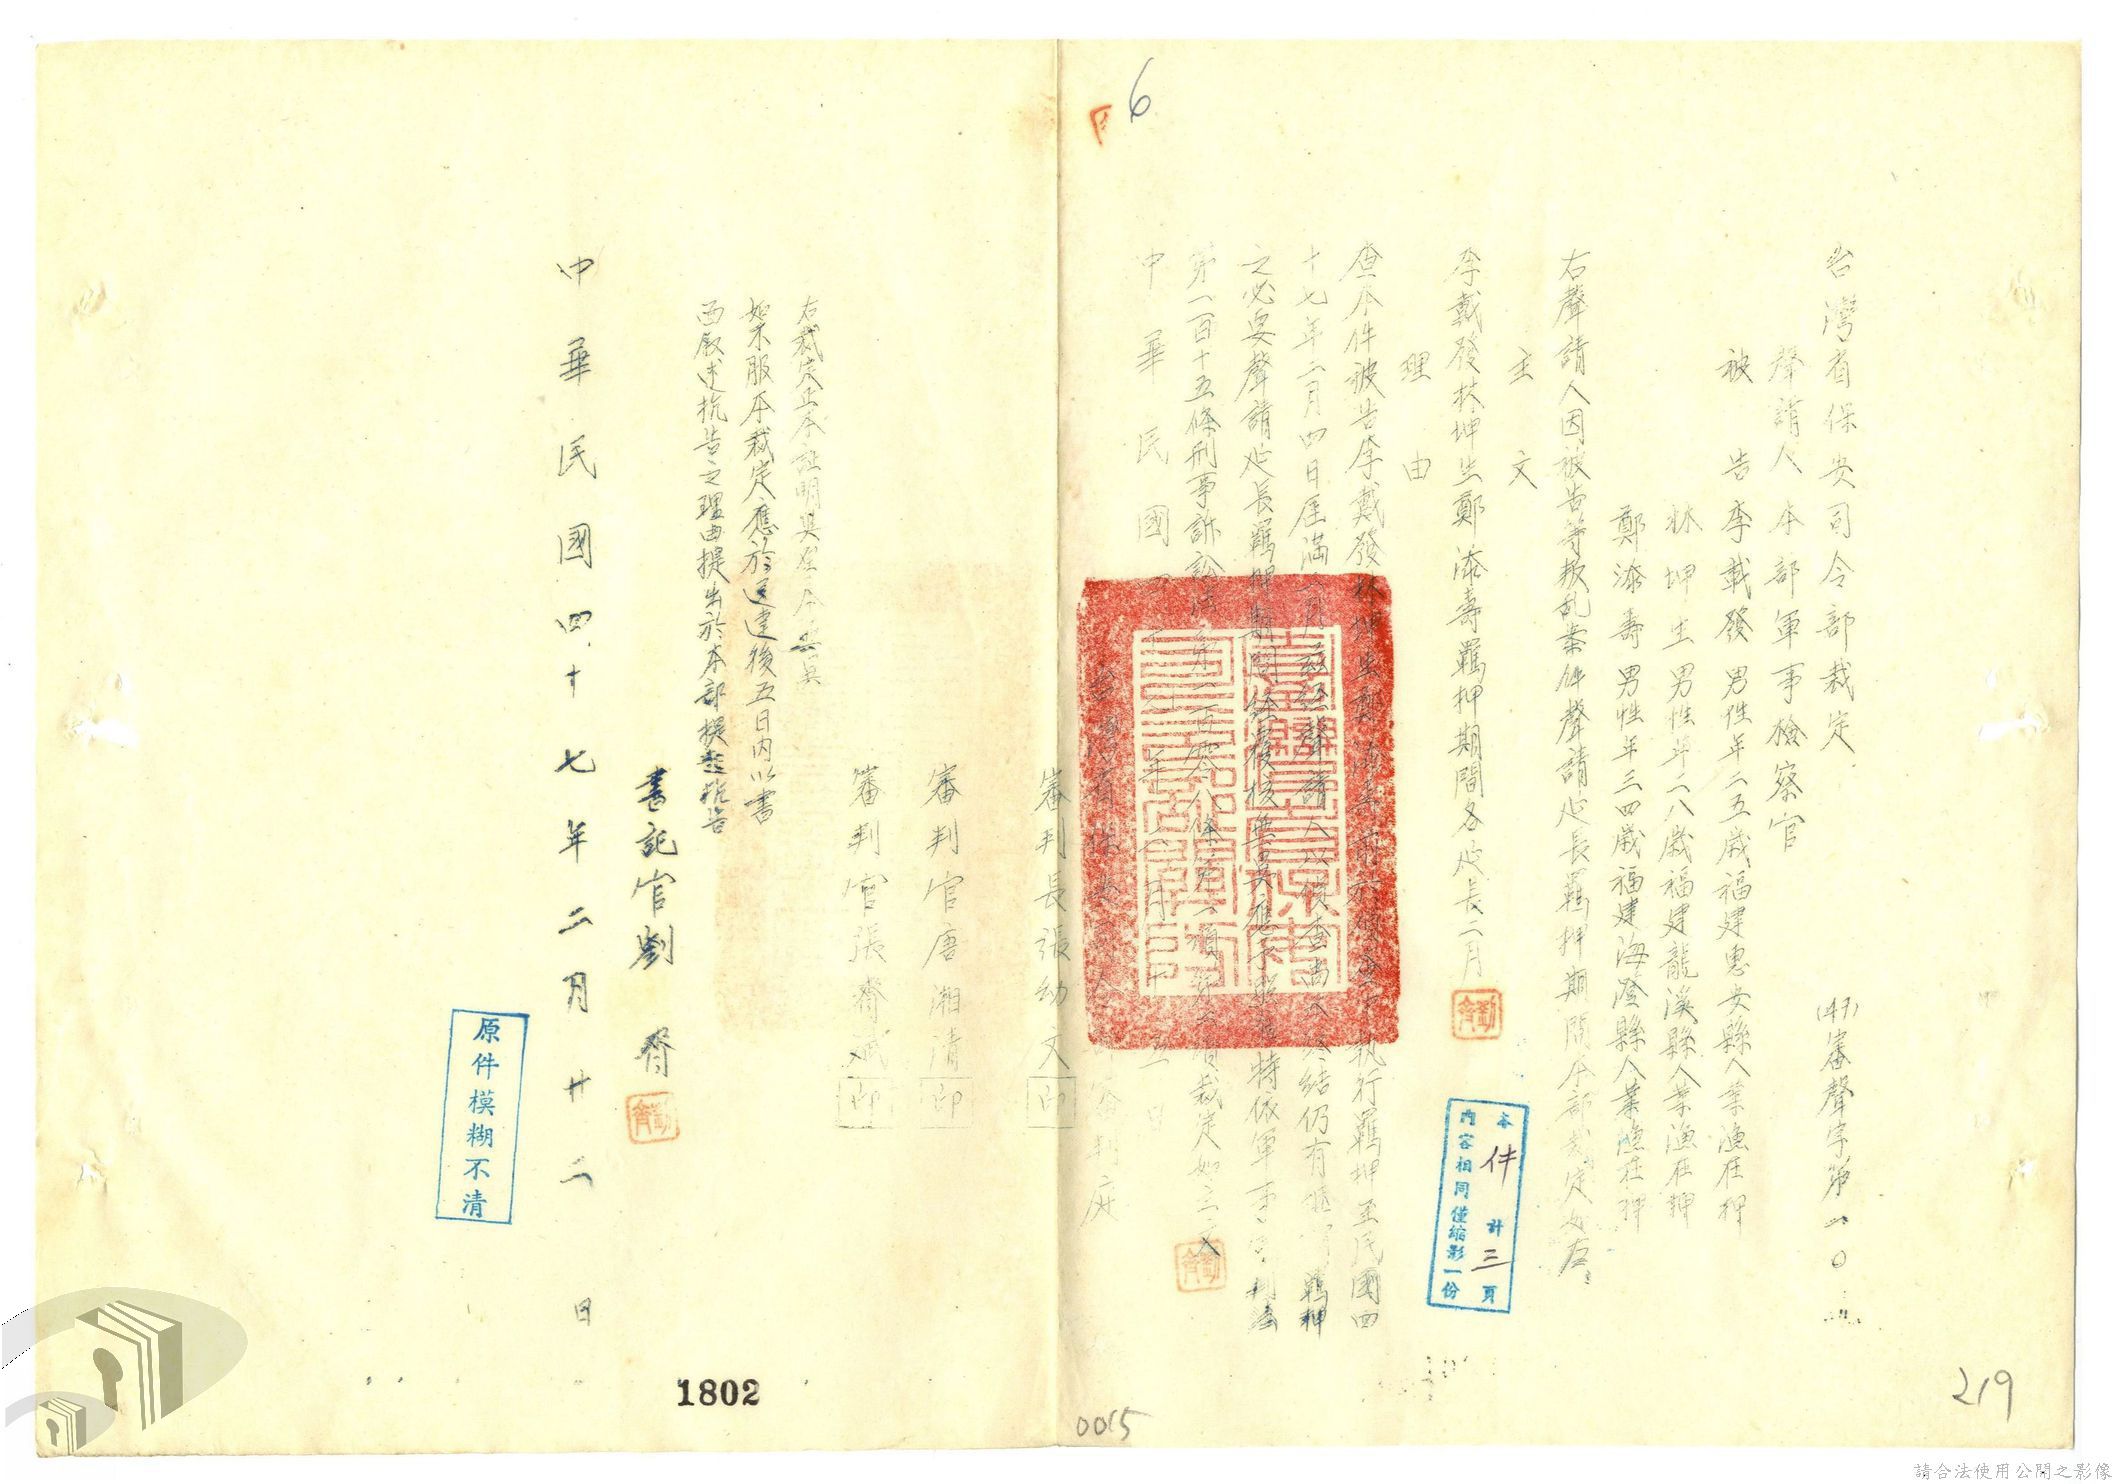 6
台灣省保安司令部裁定
(47)審聲字第一0
聲請人 本部軍事檢察官
被告 李戴發 男性年二五歲福建惠安縣人業漁在押
林坤生 男性年二八歲福建龍溪縣人業漁在押
鄭添壽 男性年三四歲福建海澄縣人業漁在押
右聲請人因被告等叛乱案件聲請延長羈押期間本部裁定如左
主文
李戴發林坤生鄭添壽羈押期間各延長二月
理由
查本件被告李戴發林坤生鄭添壽前於偵查中執行羈押至民國四
十七年二月四日屆滿 月茲經聲請人以偵查尚未終結仍有繼續羈押
之必要聲請延長羈押期間經覆核無異應予照准特依軍事審判法
第一百十五條刑事訴訟法第一百零八條第 項 裁定如主文
中華民國四十七年二月十五日
台灣省保安司令部審判庭
審判長張幼文印
審判官唐湘清印
審判官張齊斌印
右裁定正本証明與原本無異
如不服本裁定應於送達後五日內以書
面敘述抗告之理由提出於本部提起抗告
書記官劉齊
中華民國四十七年二月廿二日
本件計三頁
內容相同僅縮影一份
原件模糊不清
1802
0015
219
請合法使用公開之影像